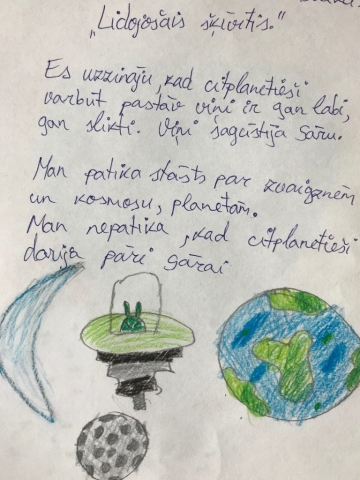 „Lidojošais šķīvītis."
Es uzzināju, kad citplanētieši
varbūt pastāv viņi ir gan labi,
gan slikti. Viņi sagūstīja Sāru.
Man patika stāsts par zvaigznēm
un kosmosu, planētām.
Man nepatika, kad citplanētieši
darīja pāri Sārai